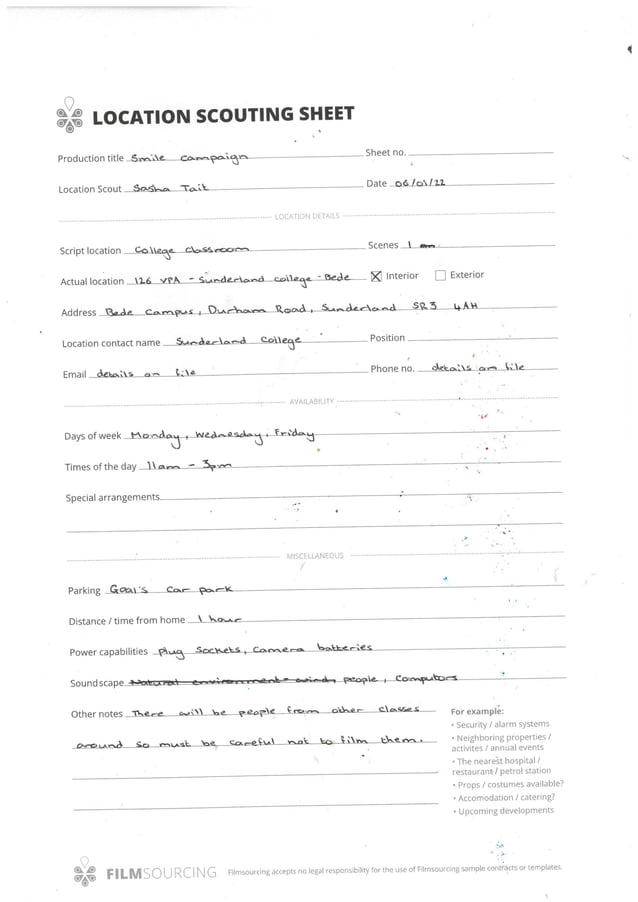 LOCATION SCOUTING SHEET
Production title Smile campaign Sheet no.
Location Scout Sasha Tait Date 06/01/22
LOCATION DETAILS
Script location College classroom Scenes 1
Actual location 126 VPA - Sunderland college - Bede Interior Exterior
Address Bede Campus, Durham Road, Sunderland SR3 4AH
Location contact name Sunderland College Position
Email details on file Phone no. details on file
AVAILABILITY
Days of week Monday, Wednesday, Friday
Times of the day 11am - 3pm
Special arrangements
MISCELLANEOUS
Parking Goal's car park
Distance / time from home 1 hour
Power capabilities Plug Sockets, Camera batteries
Soundscape Natural environment - wind, people, Computors
Other notes There will be people from other classes
around so must be careful not to film them.
For example:
• Security / alarm systems
• Neighboring properties /
activites / annual events
• The nearest hospital /
restaurant / petrol station
• Props / costumes available?
• Accomodation / catering?
• Upcoming developments
FILMSOURCING Filmsourcing accepts no legal responsibility for the use of Filmsourcing sample contracts or templates.